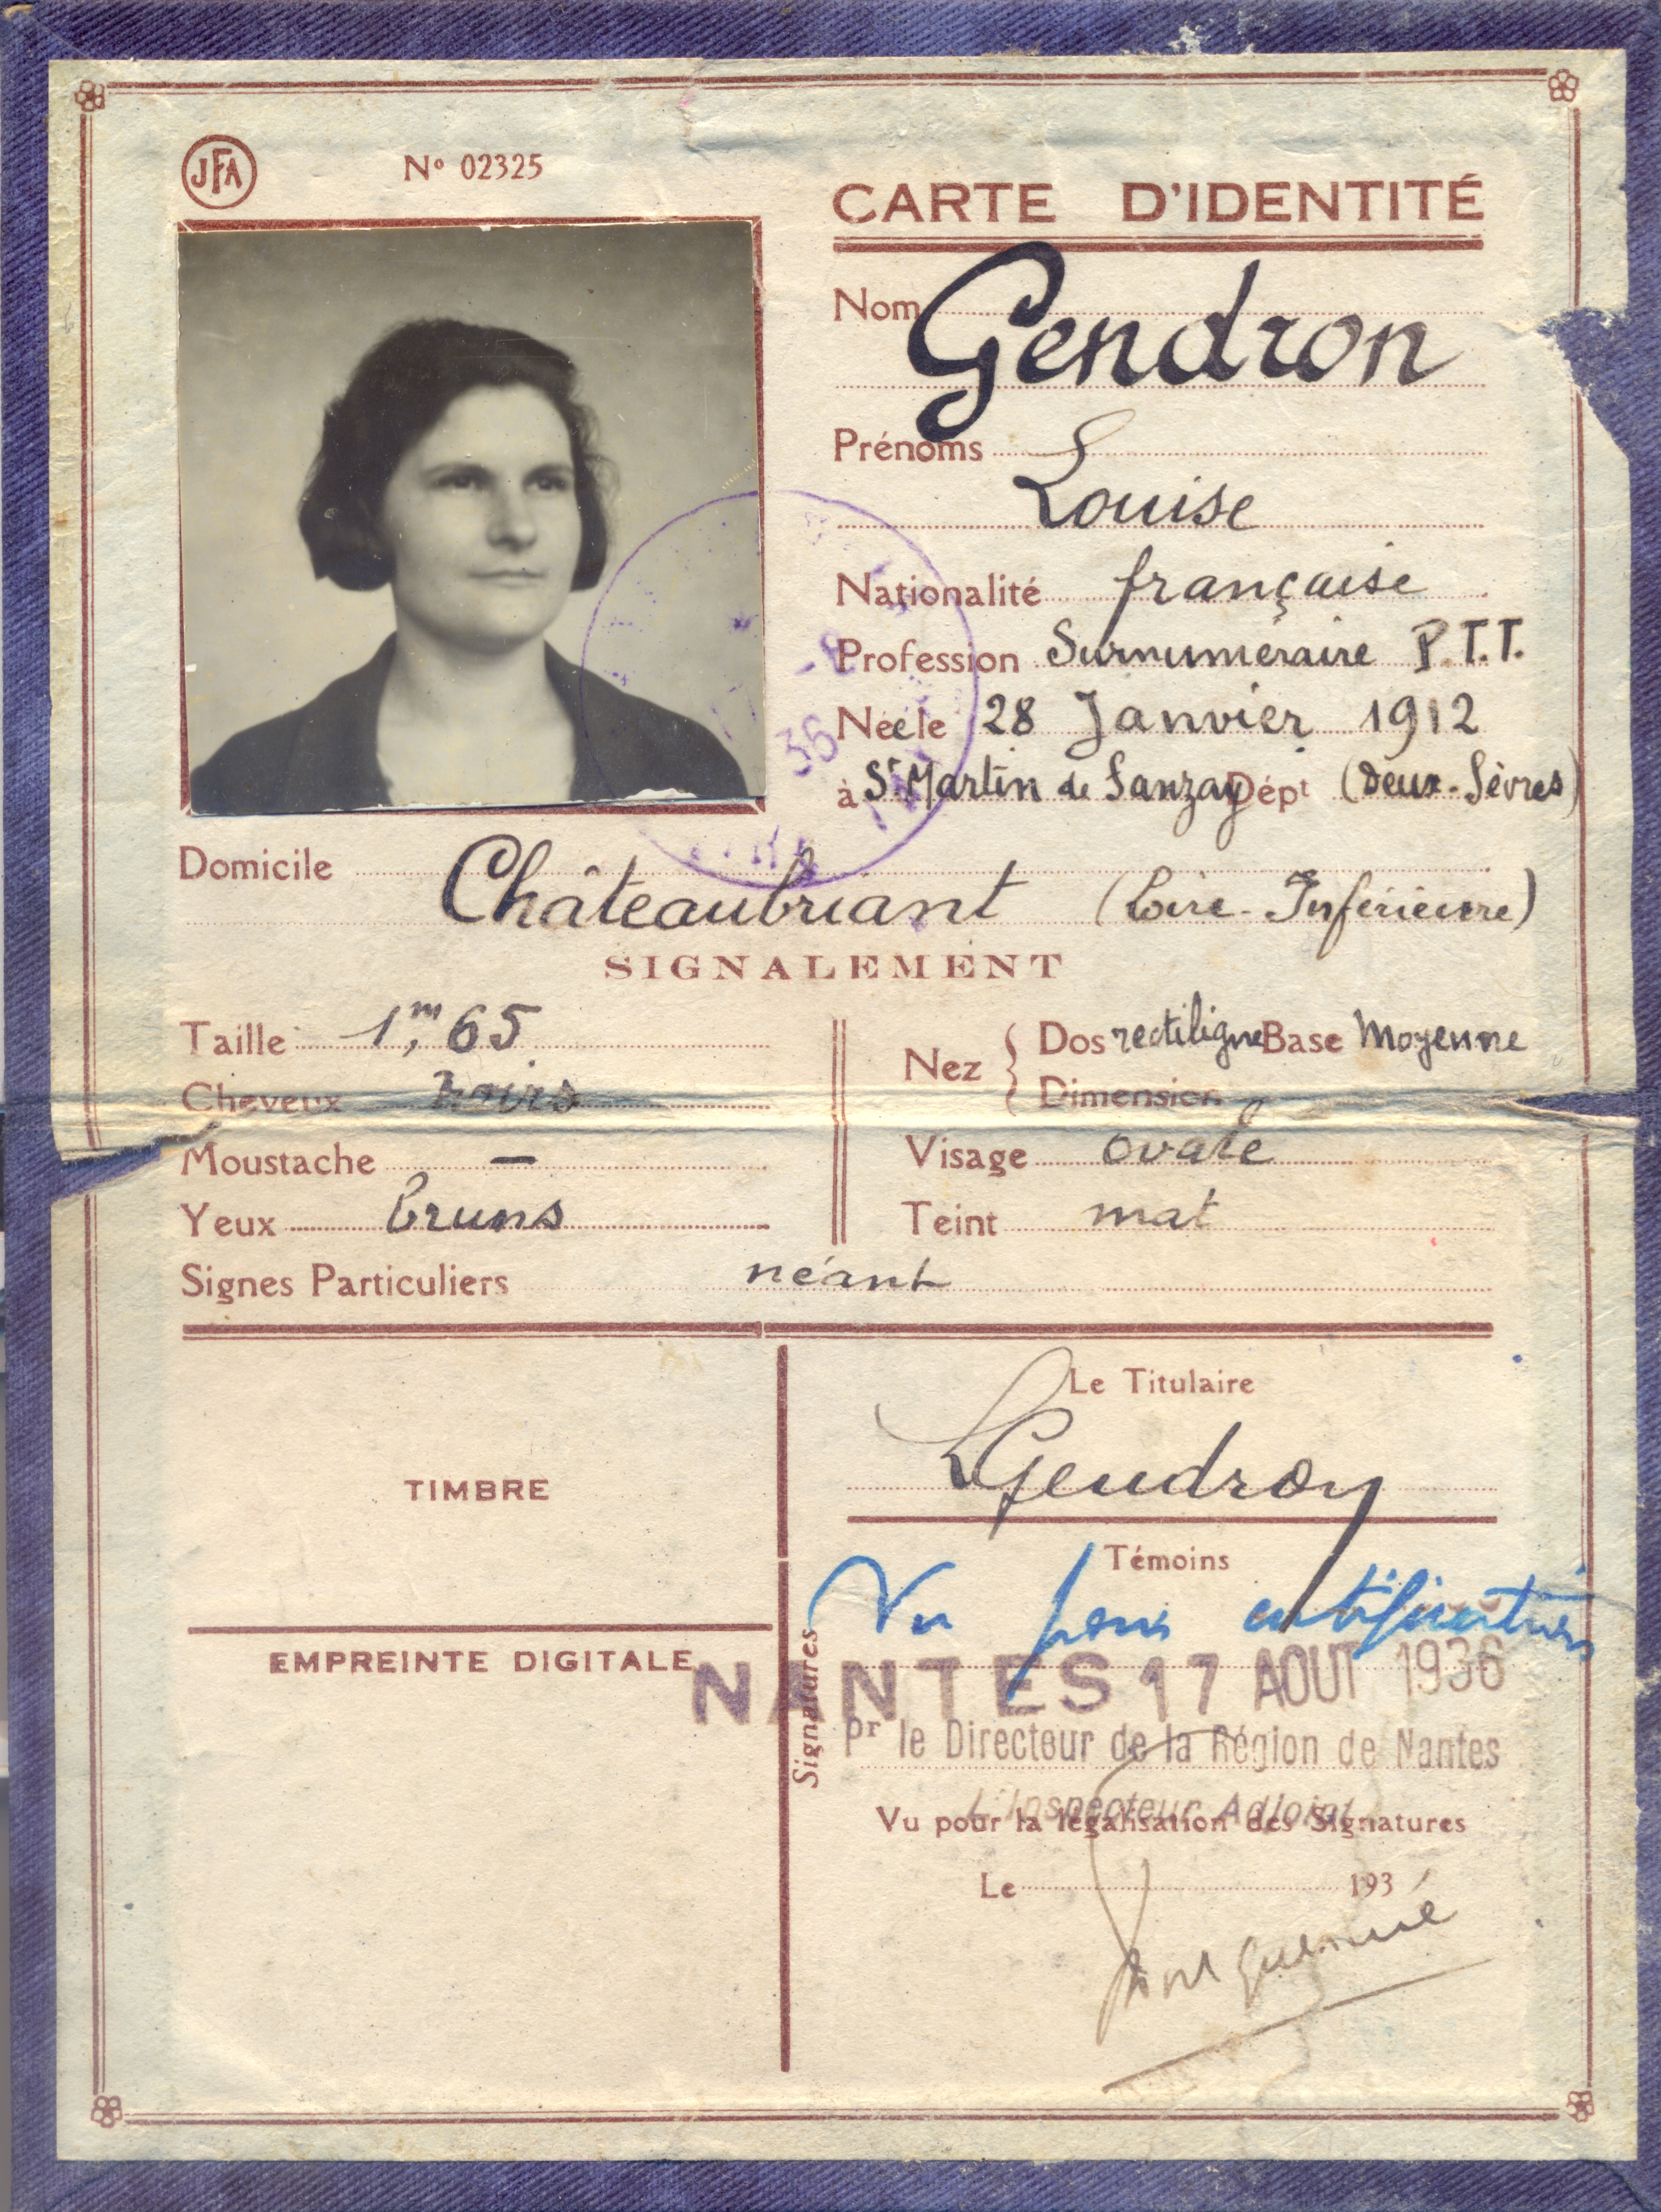 JFA
N° 02325
CARTE D'IDENTITÉ
Nom Gendron
Prénoms
Louise
Nationalité française
Profession Surnuméraire P.T.T.
Née le 28 Janvier 1912
à St Martin de Sanzay Dépt (Deux-Sèvres)
Domicile Châteaubriant (Loire-Inférieure)
SIGNALEMENT
Taille 1m,65
Cheveux noirs
Moustache —
Yeux bruns
Nez { Dos rectiligne Base Moyenne
Dimension
Visage ovale
Teint mat
Signes Particuliers néant
TIMBRE
EMPREINTE DIGITALE
Signatures
Le Titulaire
LGendron
Témoins
Vu pour
NANTES 17 AOUT 1936
Pr le Directeur de la Région de Nantes
L'Inspecteur Adjoint
Vu pour la légalisation des Signatures
Le 193